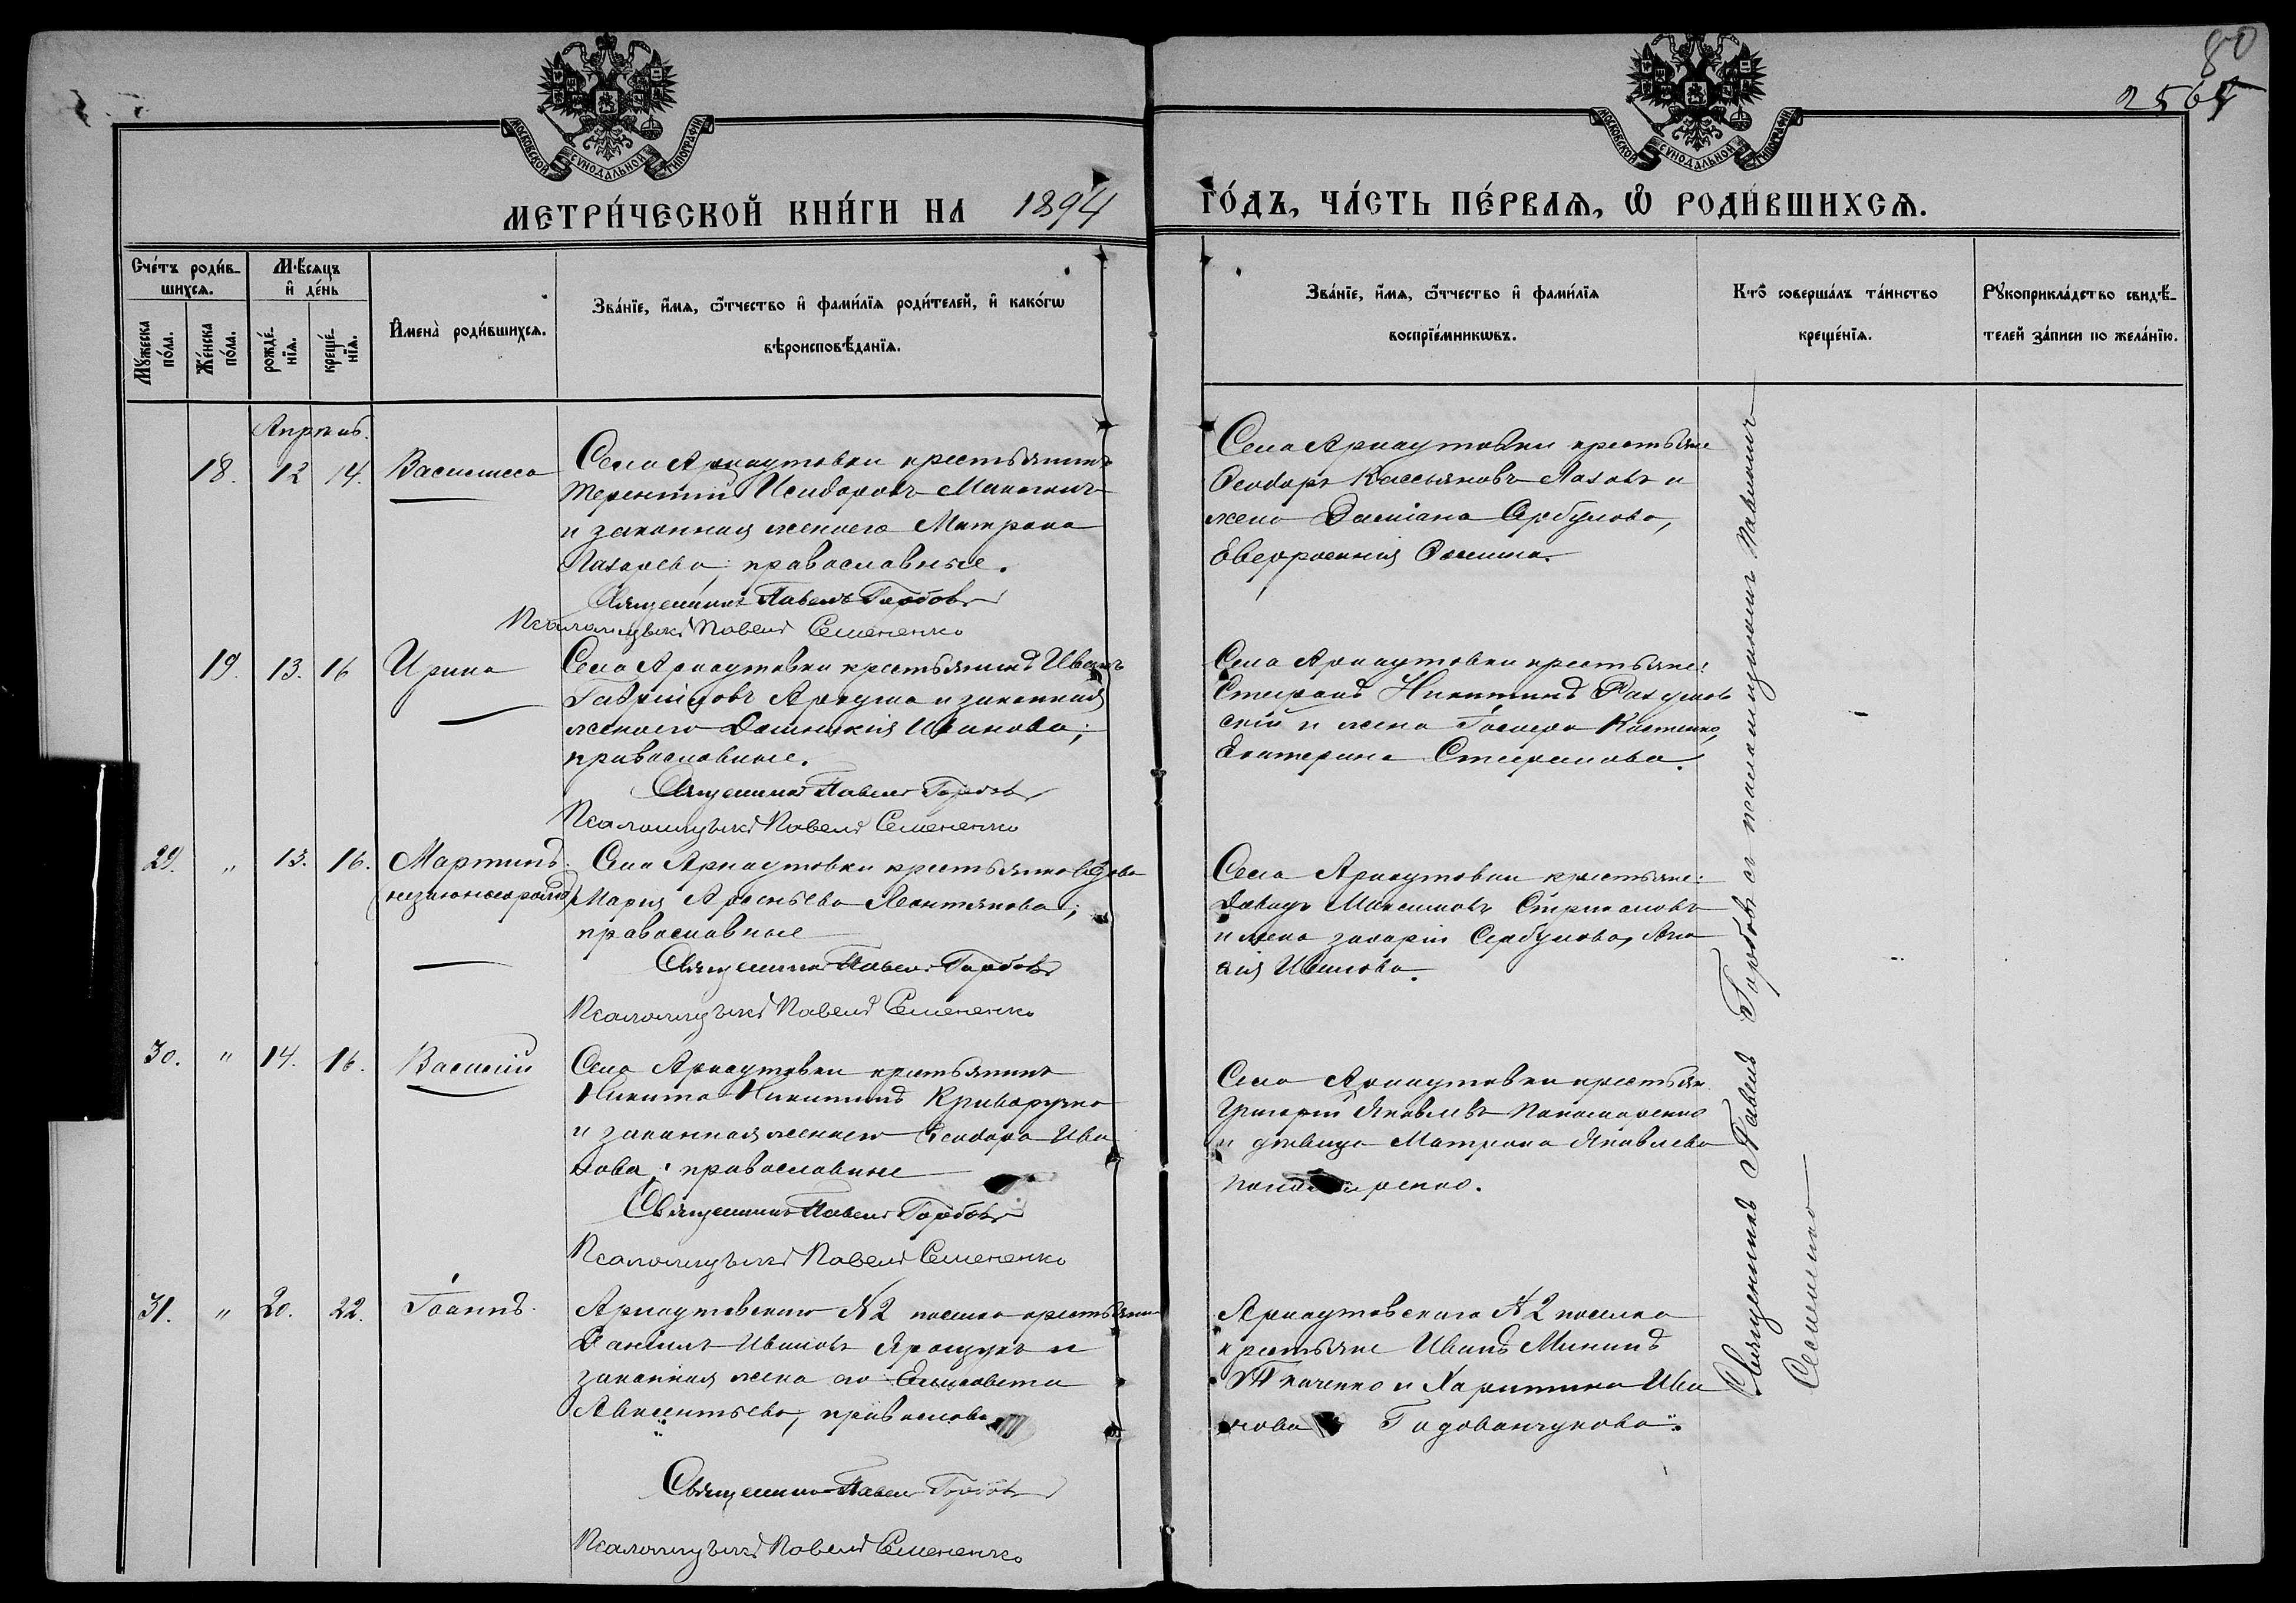 80
2564
МОСКОВСКОЙ СѴНОДАЛЬНОЙ ТИПОГРАФІИ
МОСКОВСКОЙ СѴНОДАЛЬНОЙ ТИПОГРАФІИ
МЕТРИ́ЧЕСКОЙ КНИ́ГИ НА 1894
ГО́ДЪ, ЧА́СТЬ ПЕ́РВАѦ, Ѽ РОДИ́ВШИХСѦ.
Сче́тъ роди́в-
шихсѧ.
Мꙋ́жеска по́ла.
Же́нска по́ла.
М҆ѣсѧцъ
и҆ де́нь
рожде́-
нїѧ.
креще́-
нїѧ.
И҆мена̀ роди́вшихсѧ.
Зва́нїе, и҆́мѧ, ѻ҆́тчество и҆ фами́лїѧ роди́телей, и҆ како́гѡ
вѣроисповѣ́данїѧ.
Зва́нїе, и҆́мѧ, ѻ҆́тчество и҆ фами́лїѧ
воспрїе́мникѡвъ.
Кто̀ соверша́лъ та́инство
креще́нїѧ.
Рꙋкоприкла́дство свидѣ́-
телей за́писи по жела́нїю.
Апрѣль.
18. 12 14. Василисса
Села Арнаутовки крестьянинъ
Терентій Исидоровъ
и законная жена его Матрона
Лазарева, православные.
Священникъ Павелъ Горбовъ
Псаломщикъ Павелъ Семененко
Села Арнаутовки крестьяне
Ѳеодоръ Кассьяновъ и
жена Даміана Сербулова,
Евфросинія
19. 13. 16 Ирина
Села Арнаутовки крестьянинъ Иванъ
Гавріиловъ и законная
жена его Домникія Иванова;
православные.
Священникъ Павелъ Горбовъ
Псаломщикъ Павелъ Семененко
Села Арнаутовки крестьяне:
Стефанъ Никитинъ Разумов
скій и жена Іосифа Костенко,
Екатерина Стефанова.
29. " 13. 16. Мартинъ
(незаконнорожд)
Села Арнаутовки крестьянка вдова
Марія Арсеньева Леонтьякова;
православные
Священникъ Павелъ Горбовъ
Псаломщикъ Павелъ Семененко
Села Арнаутовки крестьяне:
Давидъ Максимовъ
и жена Захарія Сербулова,
Иванова.
30. " 14. 16. Василій
Села Арнаутовки крестьянинъ
Никита Никитинъ Криворучко
и законная жена его Ѳеодора Ива
нова; православные
Священникъ Павелъ Горбовъ
Псаломщикъ Павелъ Семененко
Села Арнаутовки крестьян.
Григорій Яковлевъ Пономаренко
и дѣвица Матрона Яковлева
Пономаренко.
31. " 20. 22. Іоаннъ.
Арнаутовского № 2 поселка крестьянинъ
Даніилъ Ивановъ Ярощукъ и
законная жена его Елисавета
Авксентьева, православн
Священникъ Павелъ Горбовъ
Псаломщикъ Павелъ Семененко
Арнаутовскаго № 2 поселка
крестьяне Иванъ Мининъ
Ткаченко и Харитина Ива
нова Годованчукова.
Священникъ Павелъ Горбовъ съ псаломщикомъ Павломъ
Семененко